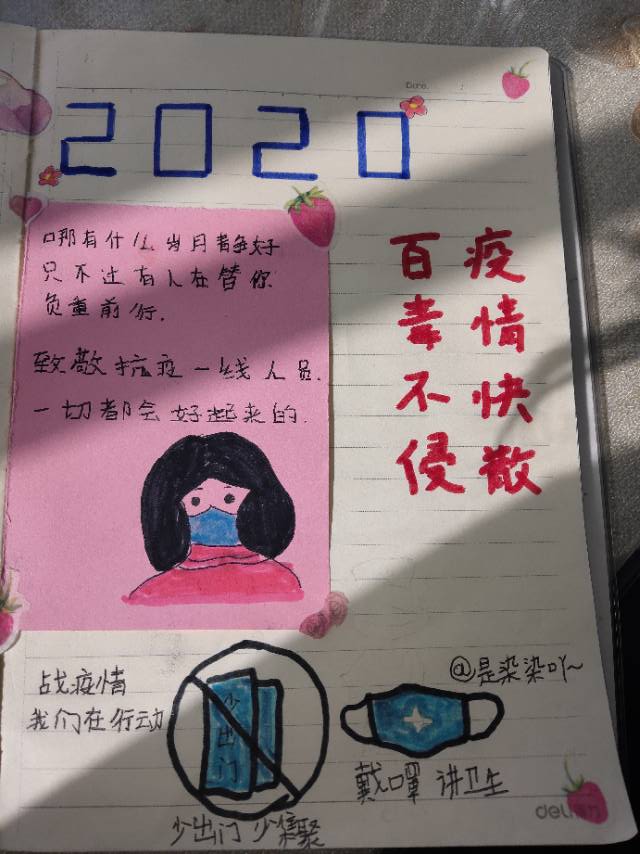 Date.
2020
哪有什么岁月静好
只不过有人在替你
负重前行.
致敬抗疫一线人员.
一切都会好起来的.
疫情快散
百毒不侵
战疫情
我们在行动
少出门
少出门 少集聚
@是染染吖~
戴口罩 讲卫生
deli得力